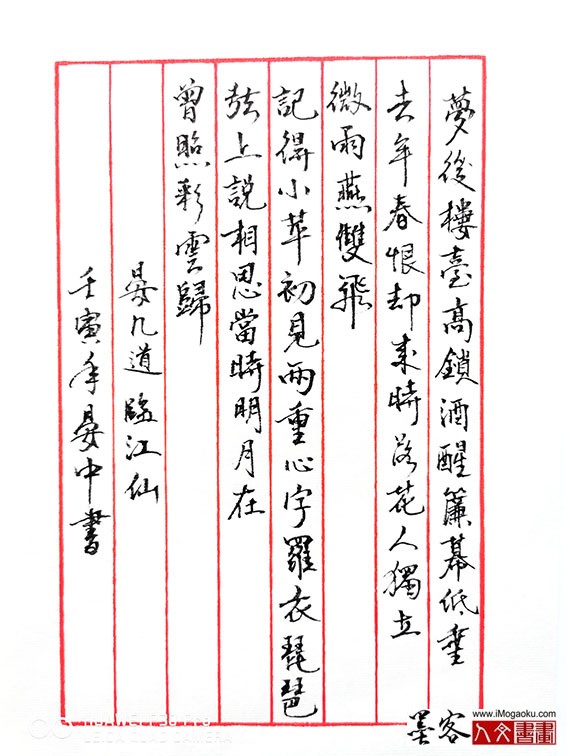 夢後樓臺高鎖酒醒簾幕低垂
去年春恨却來時落花人獨立
微雨燕雙飛
記得小苹初見兩重心字羅衣琵琶
弦上說相思當時明月在
曾照彩雲歸
晏几道臨江仙
壬寅年晏中書
墨客
www.iMogaoku.com
人文書畫